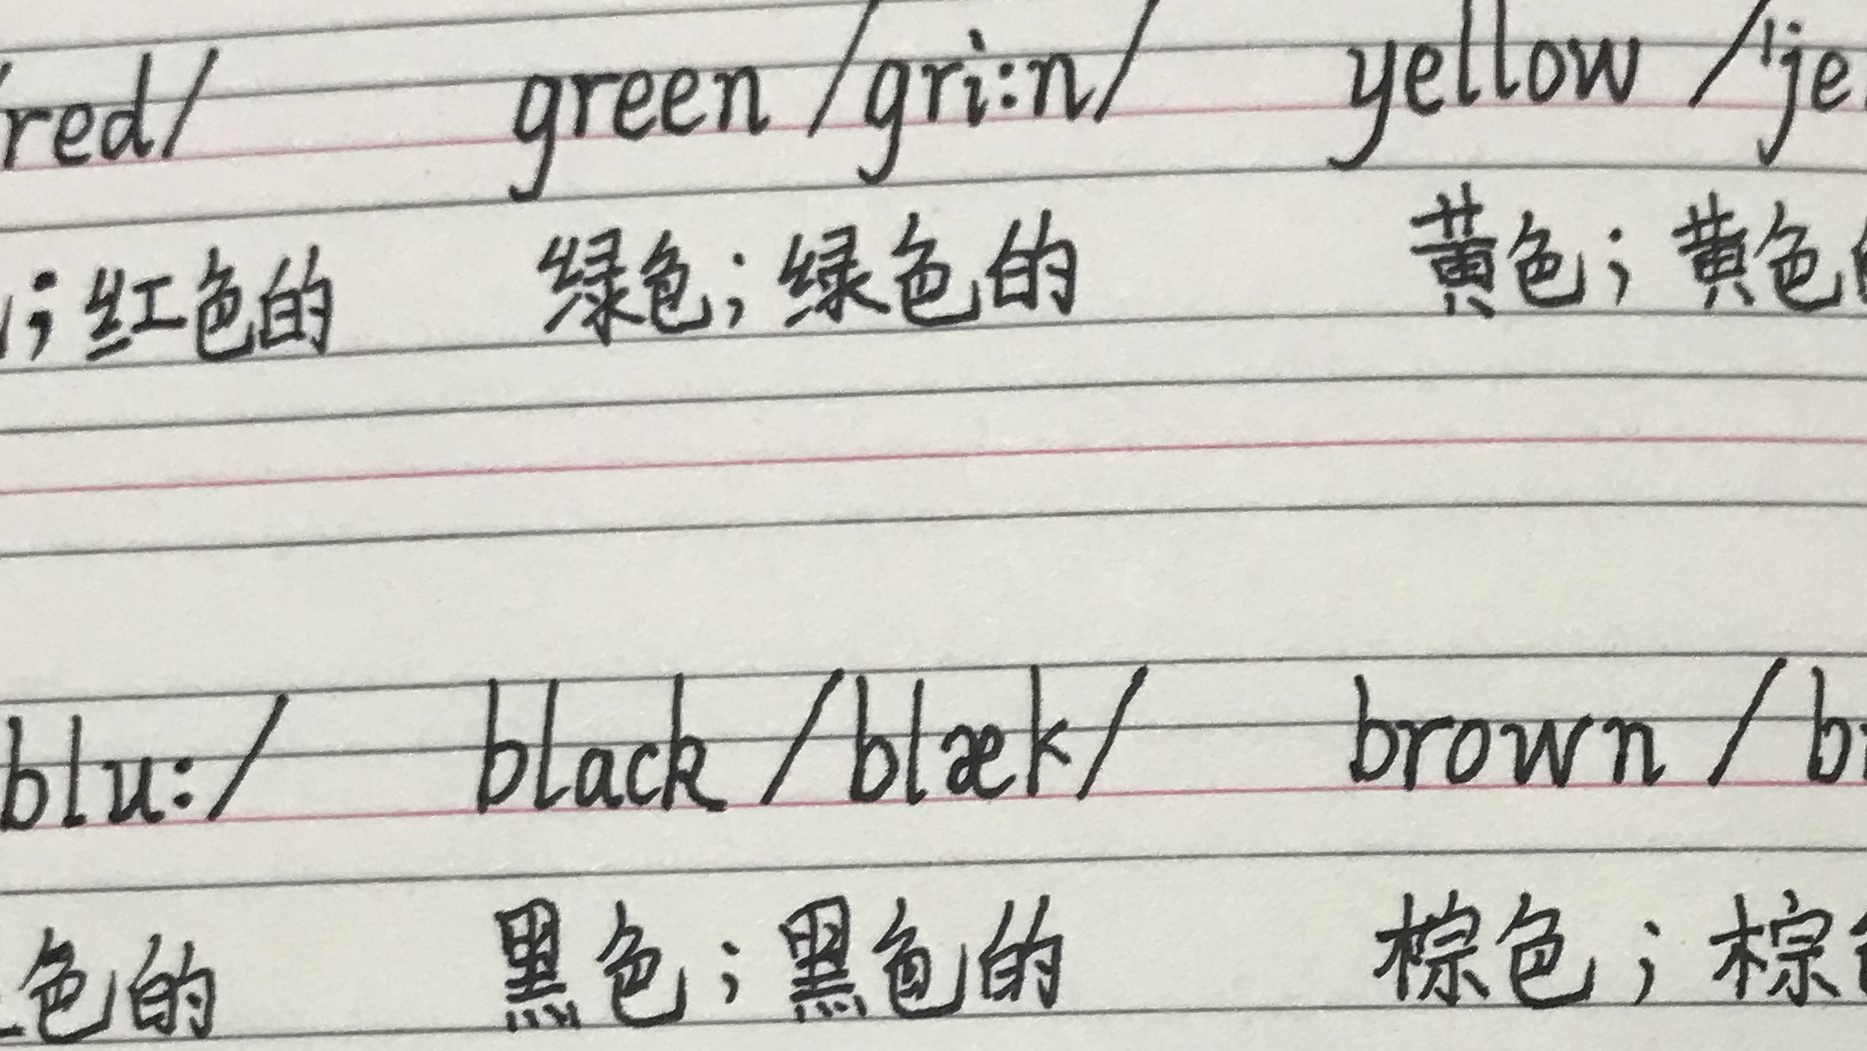 red/ green /gri:n/ yellow /'je
;红色的 绿色;绿色的 黄色;黄色
blu:/ black /blæk/ brown /b
色的 黑色;黑色的 棕色;棕